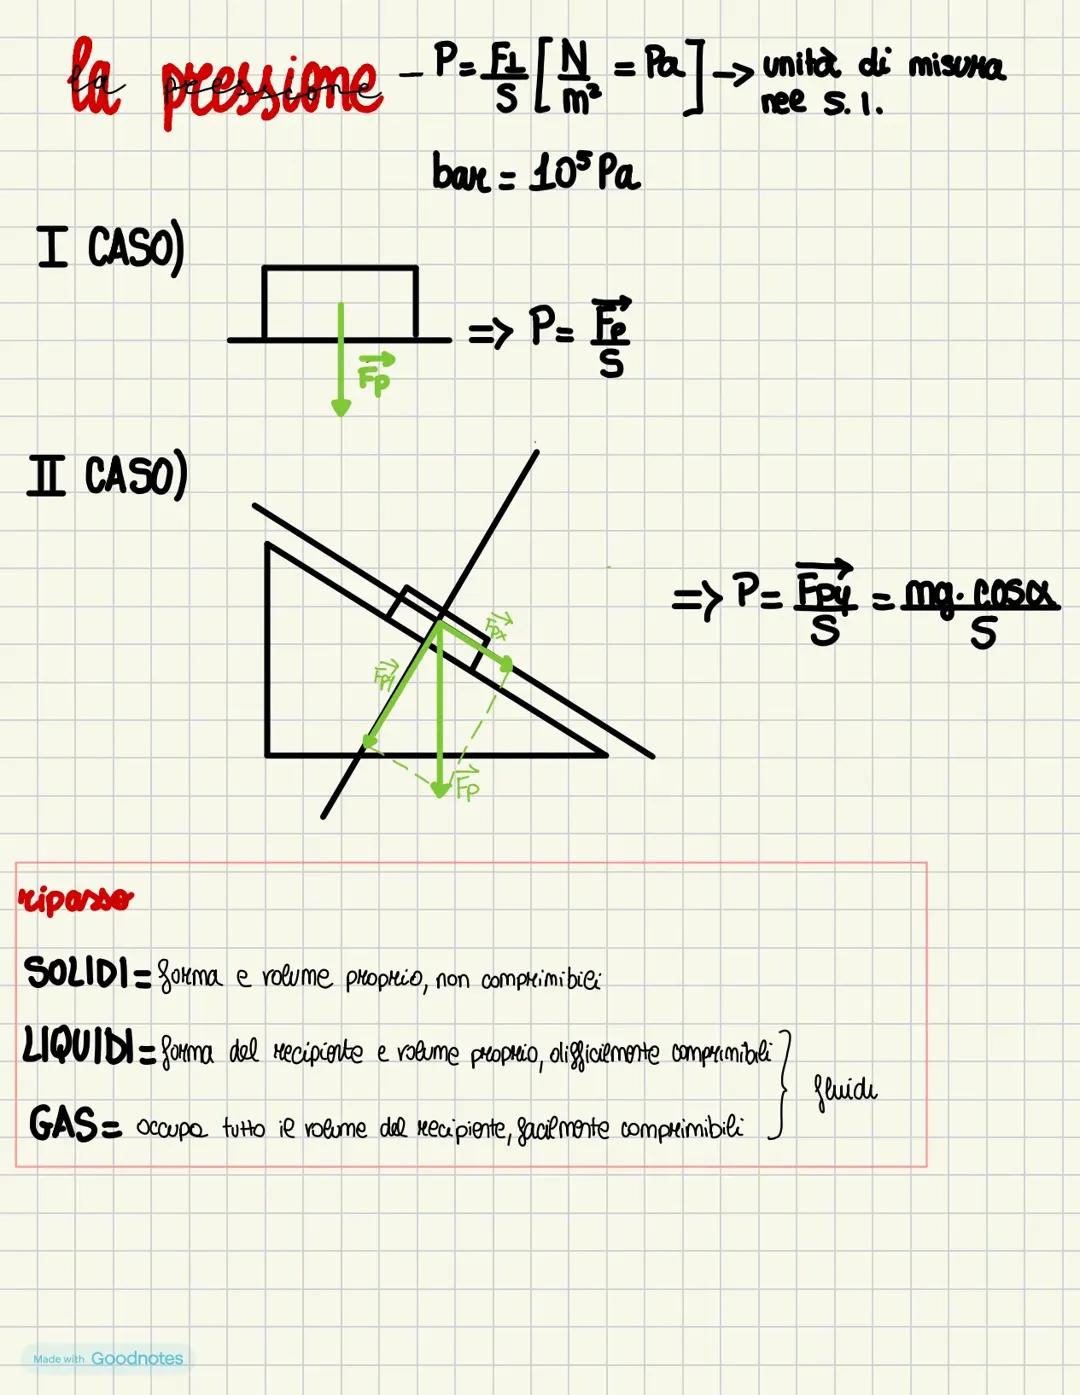 la pressione – P = F⊥/S [N/m² = Pa] → unità di misura nel S.I.
bar = 10⁵ Pa
I CASO)
F⃗p
⇒ P = F⃗p/S
II CASO)
F⃗px
F⃗py
F⃗p
⇒ P = F⃗py/S = mg·cosα/S
ripasso
SOLIDI = forma e volume proprio, non comprimibili
LIQUIDI = forma del recipiente e volume proprio, difficilmente comprimibili
fluidi
GAS = occupa tutto il volume del recipiente, facilmente comprimibili
Made with Goodnotes